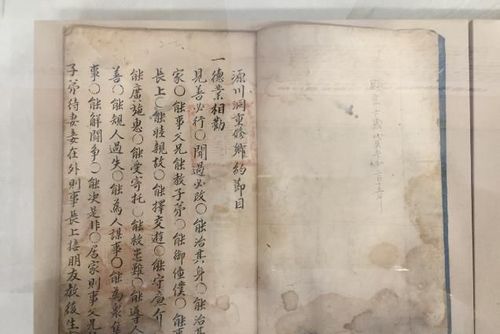 源川洞重修鄉約節目
一德業相勸
見善必行○聞過必改○能治其身○能治其
家○能事父兄能教子弟○能御僮僕○能事
長上○能睦親故○能擇交遊○能守廉介
能廣施惠○能受寄托○能救患難○能導人
善○能規人過失○能為人謀事○能為衆集
事○能解鬪爭○能決是非○居家則事父兄
子弟待妻妾在外則事長上接朋友教後生